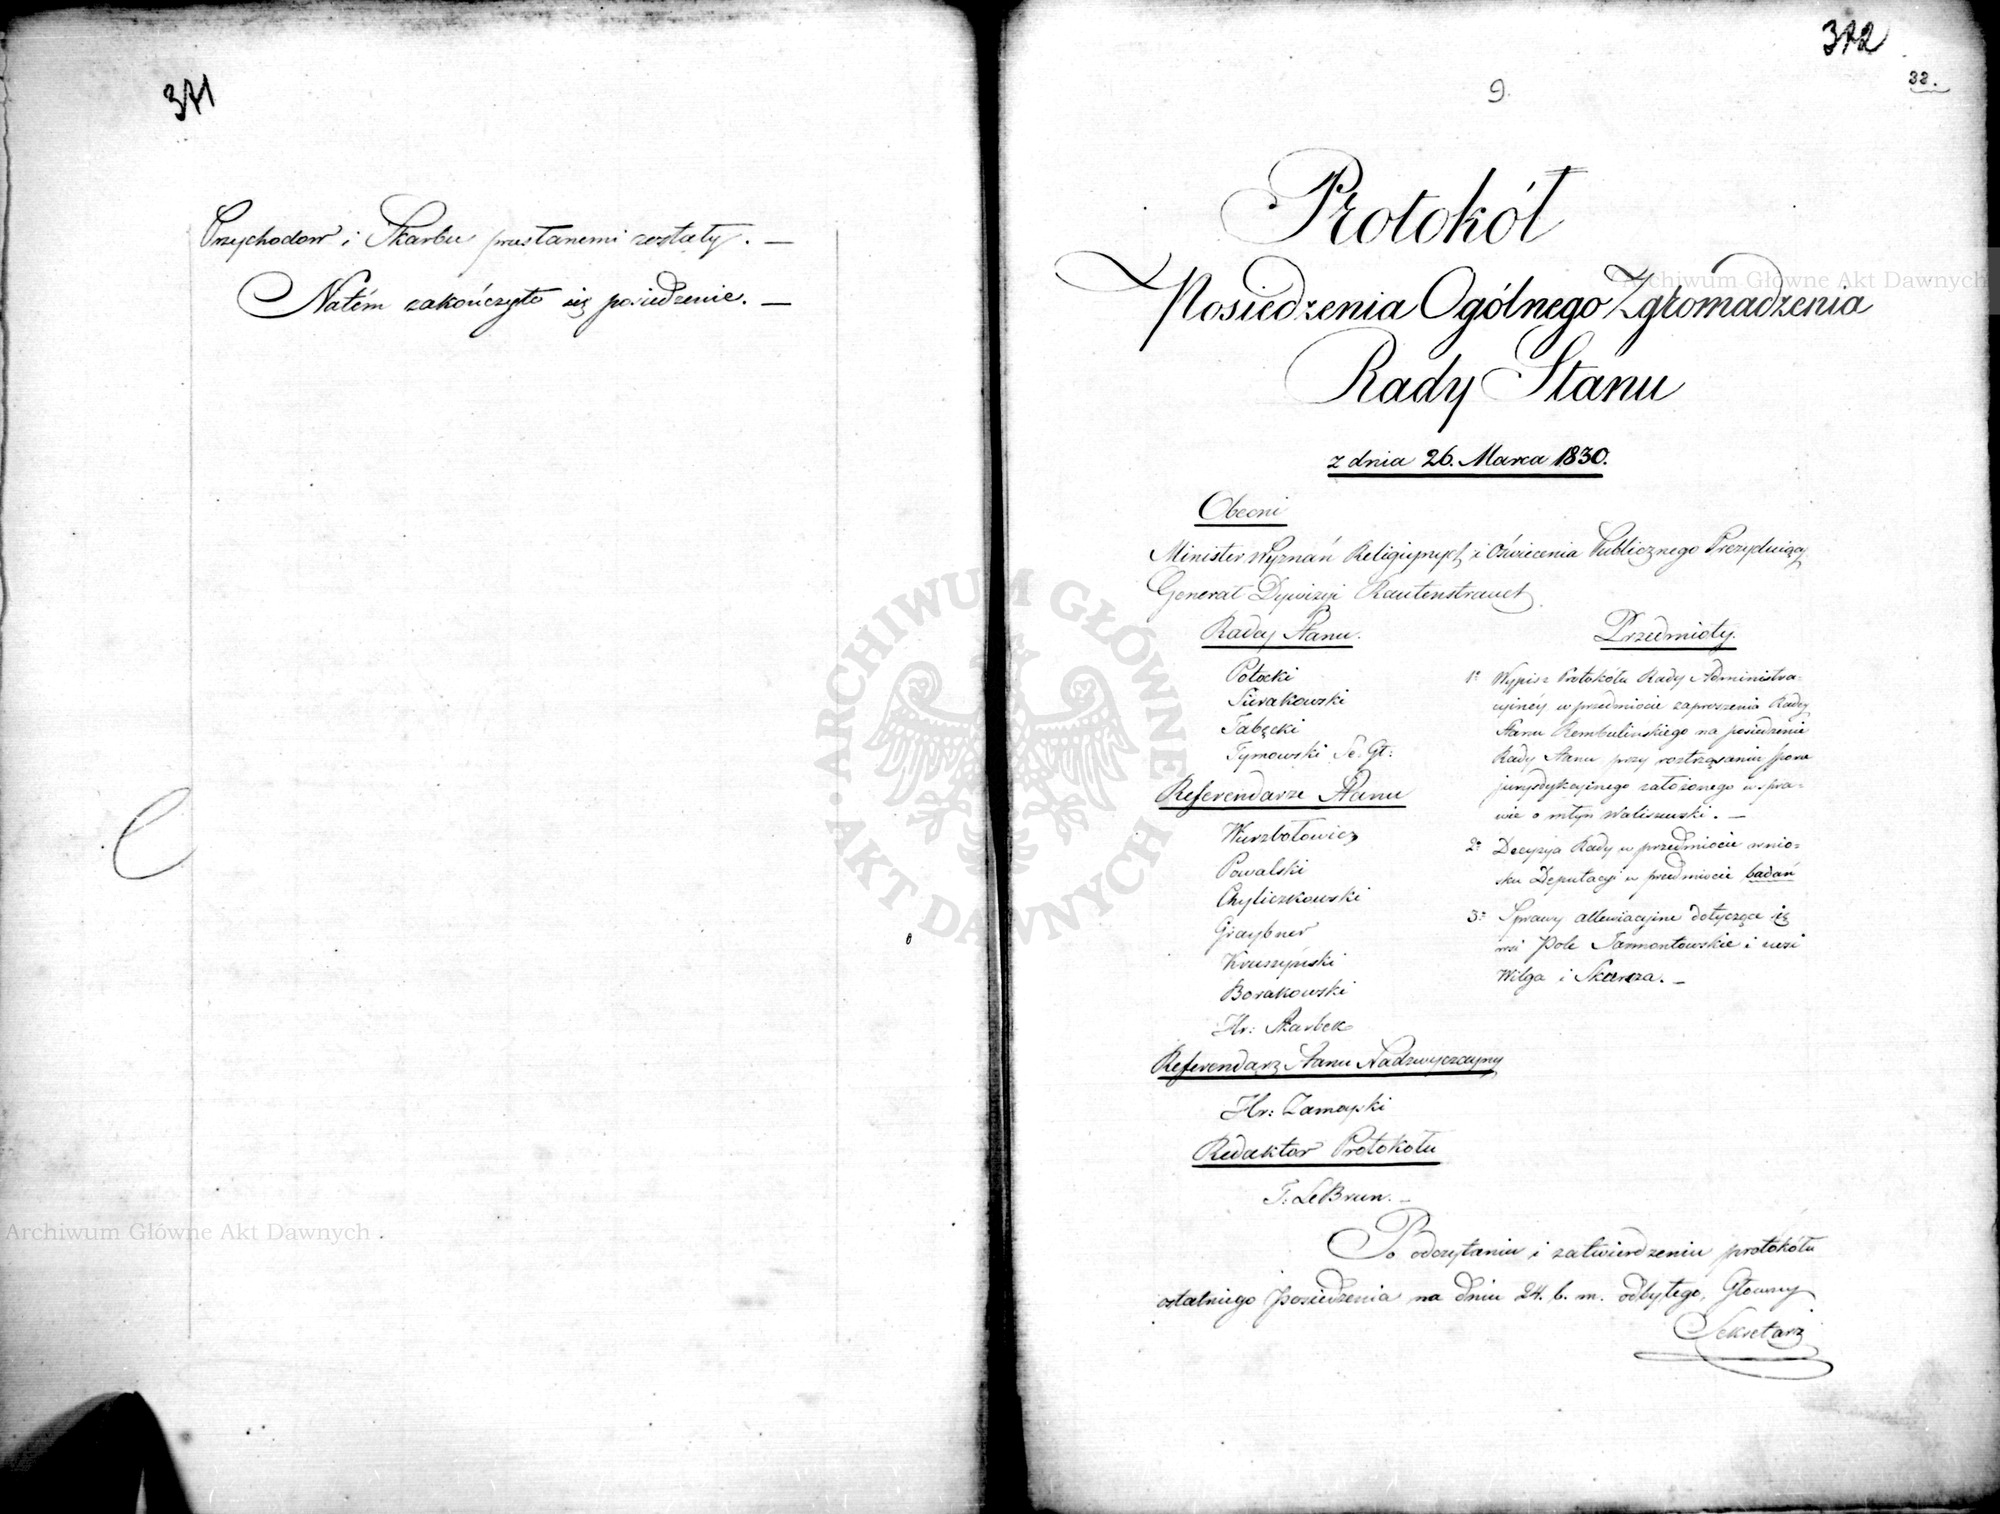 371
Przychodow i Skarbu przesłanemi zostały. —
Natém zakończyło się posiedzenie. —
Archiwum Główne Akt Dawnych
372
32.
9.
Protokół
Posiedzenia Ogólnego Zgromadzenia
Archiwum Główne Akt Dawnych
Rady Stanu
z dnia 26. Marca 1830.
Obecni
Minister Wyznań Religijnych i Oświecenia Publicznego Prezydujący
Generał Dywizji Rautenstrauch
Radcy Stanu.
Potocki
Sierakowski
Tymowski
Referendarze Stanu
Wierzbołowicz
Powalski
Chyliczkowski
Graybner
Kruszyński
Borakowski
Hr: Skarbek
Referendarz Stanu Nadzwyczajny
Hr: Zamoyski
Redaktor Protokołu
LeBrun. —
Przedmioty.
1º Wypis Protokółu Rady Administra=
cyjnéy w przedmiocie zaproszenia Radcy
Stanu Rembielinskiego na posiedzenie
Rady Stanu przy roztrząsaniu sporu
jurysdykcyjnego założonego w spra=
wie o młyn Waliszewski. —
2º Decyzja Rady w przedmiocie wnio=
sku Deputacyi w przedmiocie badań
3º Sprawy allewiacyjne dotyczące się
wsi Pole i wsi
Wilga i Skurcza. —
Po odczytaniu i zatwierdzeniu protokółu
ostatniego posiedzenia na dniu 24. b. m. odbytego, Głowny
Sekretarz
ARCHIWUM GŁÓWNE · AKT DAWNYCH ·